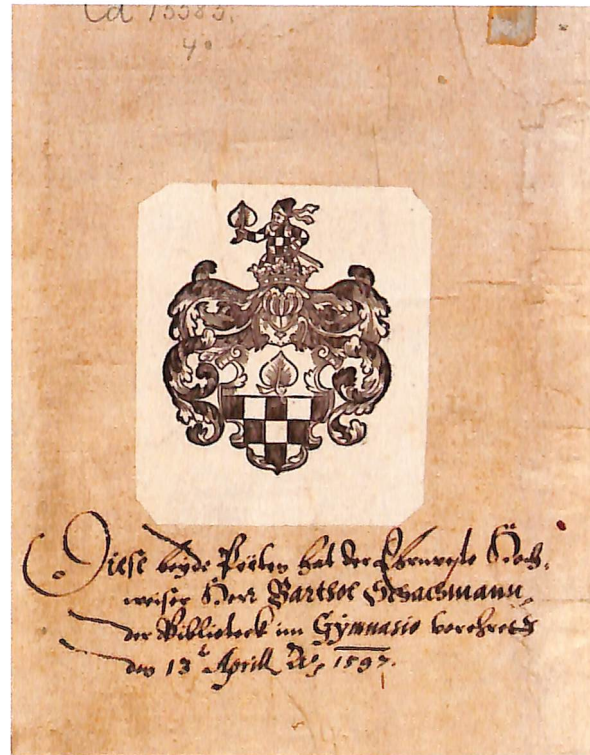 Cd 15585.
4°
Diese beyde hat der Ehrnveste Hoch-
weiser Herr Barthol Schachmann
der Biblioteck im Gymnasio verehret
den 13 Aprill Ao 1597.